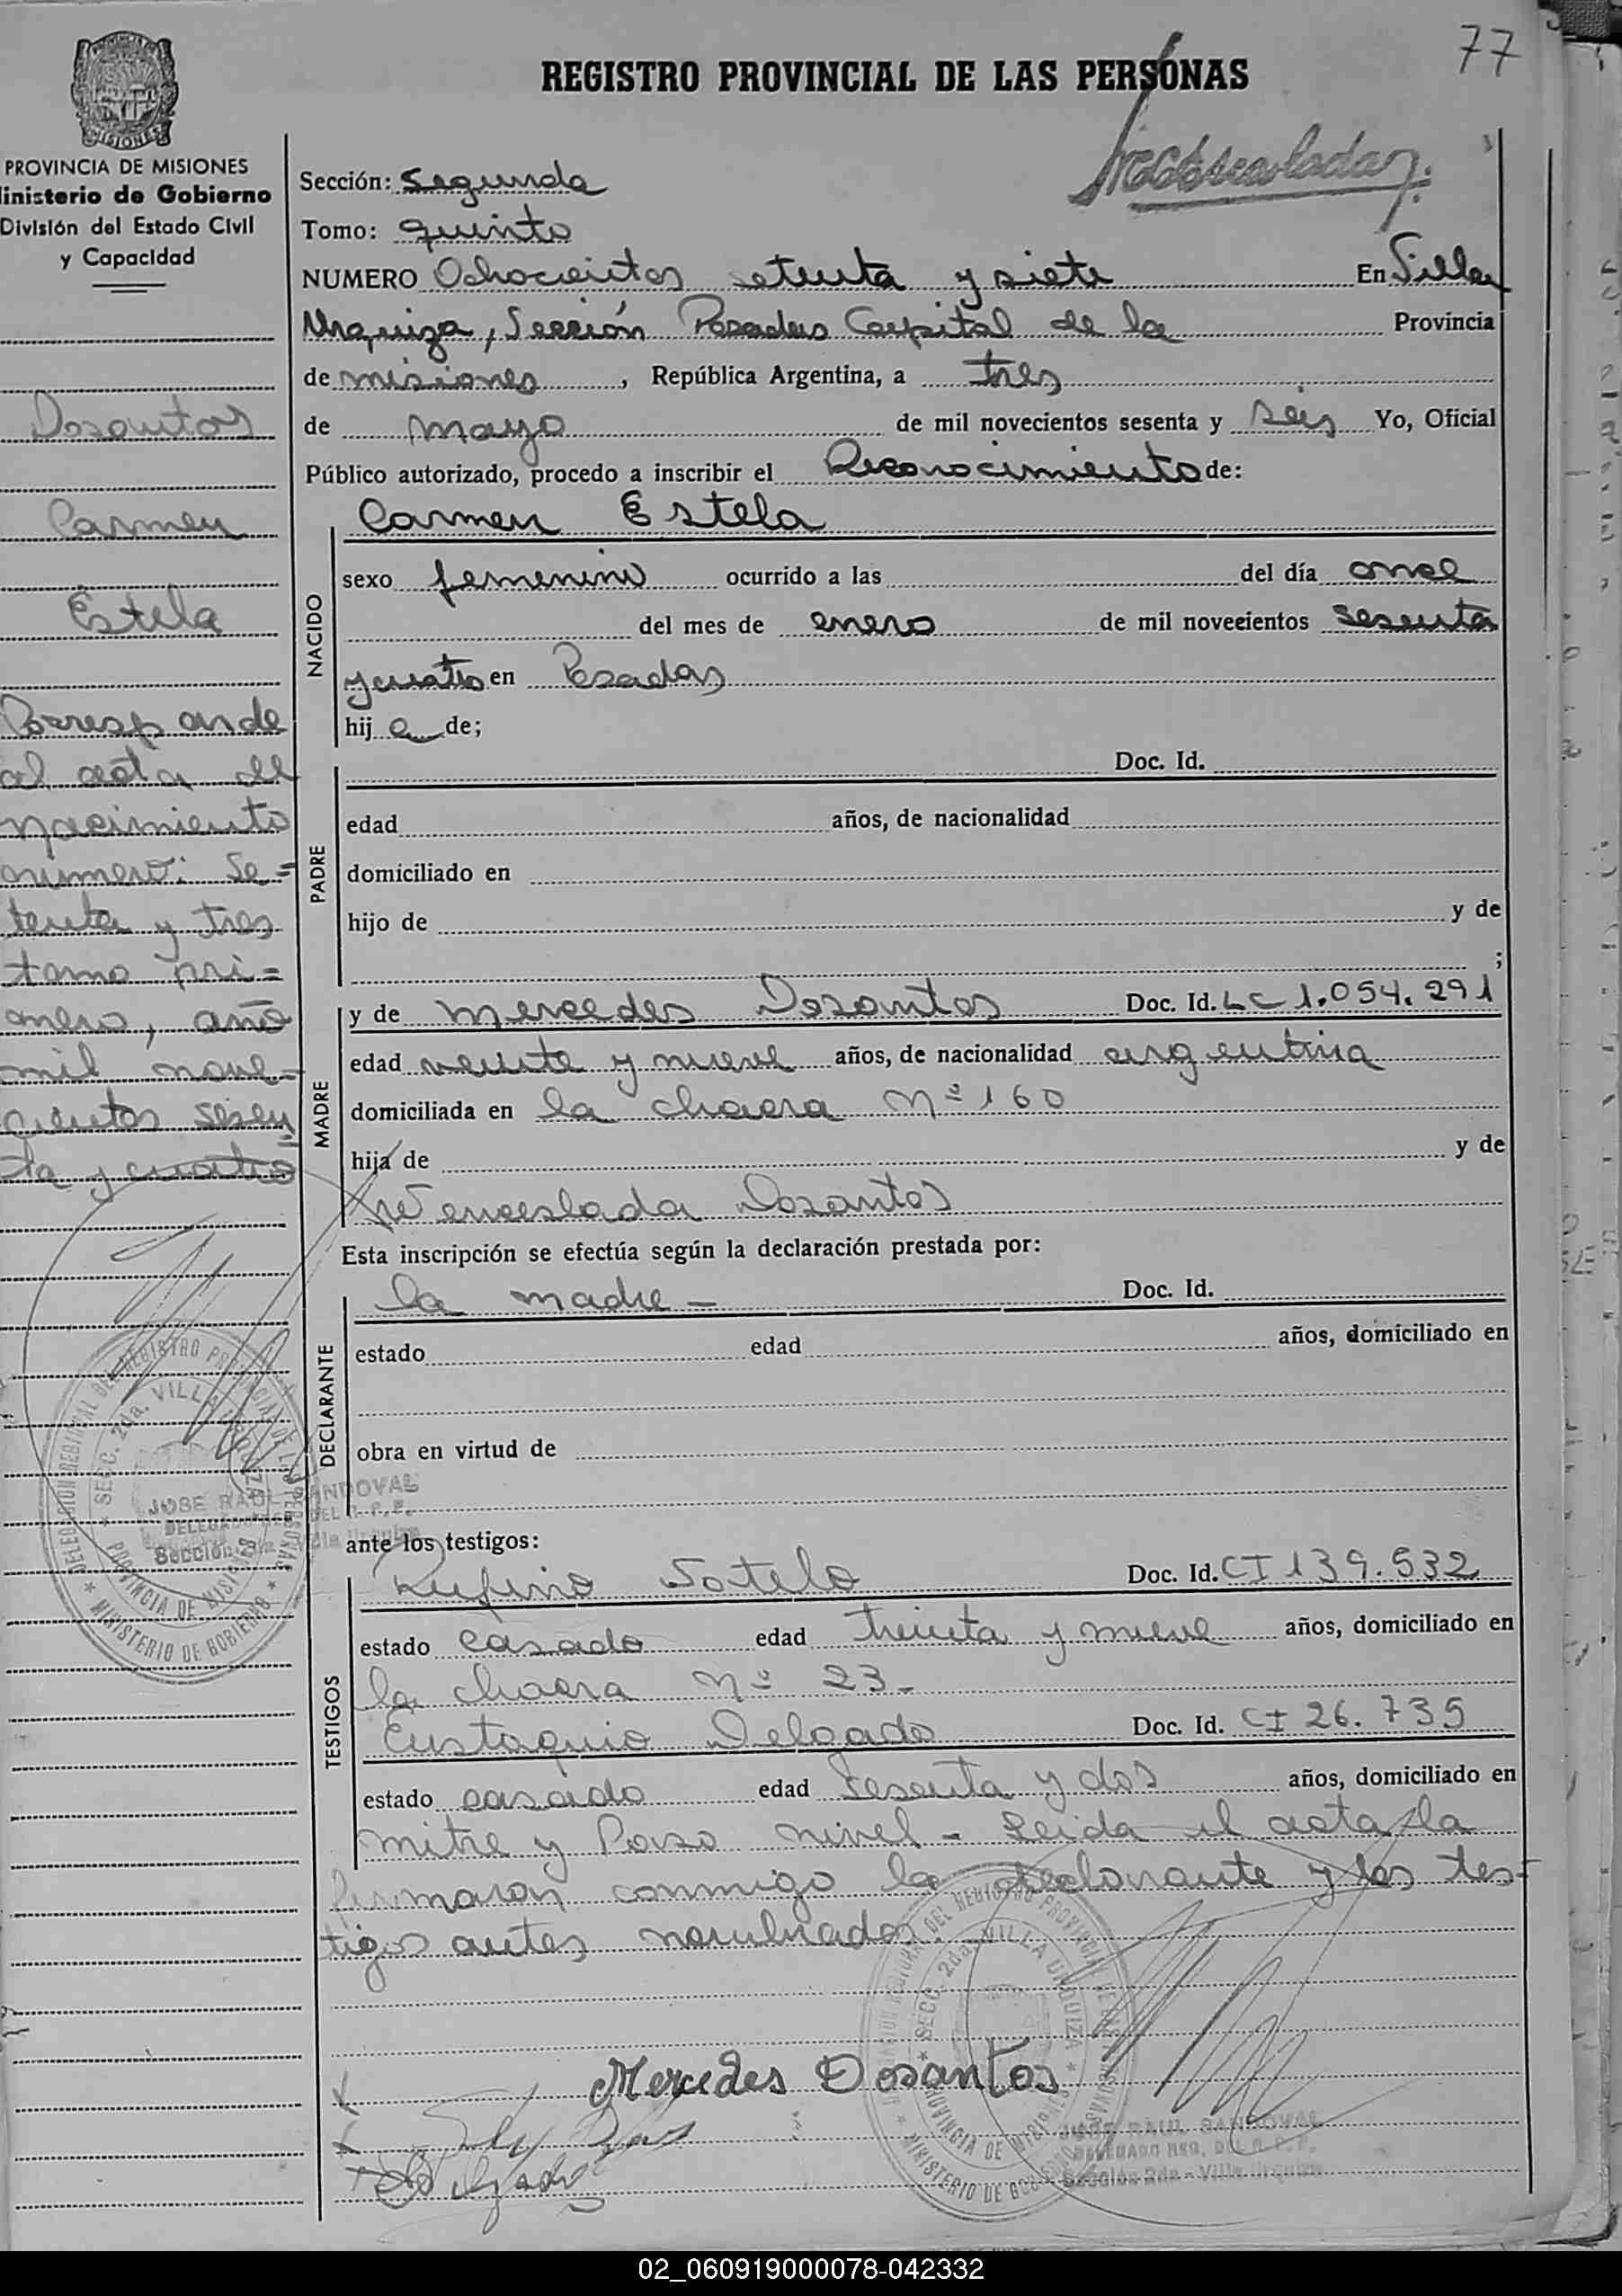 77
REGISTRO PROVINCIAL DE LAS PERSONAS
MISIONES
PROVINCIA DE MISIONES
Ministerio de Gobierno
División del Estado Civil
y Capacidad
Sección: Segunda
Tomo: quinto
NUMERO Ochocientos setenta y siete En Villa
Urquiza, Sección Posadas Capital de la Provincia
de misiones, República Argentina, a tres
de mayo de mil novecientos sesenta y seis Yo, Oficial
Público autorizado, procedo a inscribir el Reconocimiento de:
Dosantos
Carmen
Estela
Corresponde
al acta de
nacimiento
numero: Se=
tenta y tres
tomo pri=
mero, año
mil nove=
cientos sesen
ta y cuatro
NACIDO
Carmen Estela
sexo femenino ocurrido a las del día once
del mes de enero de mil novecientos sesenta
y cuatro en Posadas
hij a de;
PADRE
Doc. Id.
edad años, de nacionalidad
domiciliado en
hijo de y de
;
MADRE
y de Mercedes Dosantos Doc. Id. LC 1.054.291
edad veinte y nueve años, de nacionalidad argentina
domiciliada en la chacra Nº 160
hija de y de
Wenceslada Dosantos
Esta inscripción se efectúa según la declaración prestada por:
DECLARANTE
la madre - Doc. Id.
estado edad años, domiciliado en
obra en virtud de
ante los testigos:
TESTIGOS
Rufino Sotelo Doc. Id. CI 139.532
estado casado edad treinta y nueve años, domiciliado en
la chacra Nº 23-
Eustaquio Delgado Doc. Id. CI 26.735
estado casado edad sesenta y dos años, domiciliado en
mitre y Paso nivel - Leida el acta la
firmaron conmigo la declarante y los tes-
tigos antes nombrados.
Mercedes Dosantos
DEL REGISTRO PROVINCIAL DE LAS PERSONAS
SECC. 2da. VILLA URQUIZA
PROVINCIA DE MISIONES
MINISTERIO DE GOBIERNO
JOSE RAUL SANDOVAL
Sección 2da - Villa Urquiza
DEL REGISTRO PROVINCIAL DE LAS PERSONAS
SECC. 2da. VILLA URQUIZA
PROVINCIA DE MISIONES
MINISTERIO DE GOBIERNO
JOSE RAUL SANDOVAL
DELEGADO REG. DEL R.P.P.
Sección 2da - Villa Urquiza
02_060919000078-042332